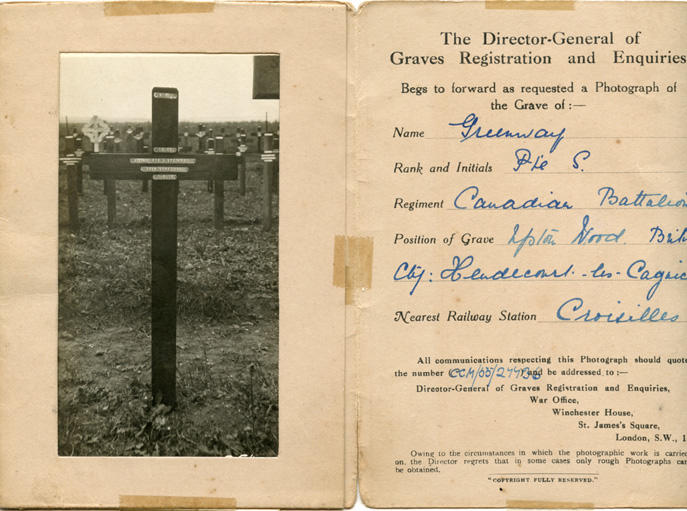 The Director-General of
Graves Registration and Enquiries
Begs to forward as requested a Photograph of
the Grave of :—
Name Greenway
Rank and Initials Pte S.
Regiment Canadian Battalion
Position of Grave Upton Wood. Brit
Cty: Hendecourt-les-Cagnic
Nearest Railway Station Croisilles
All communications respecting this Photograph should quote
the number and be addressed to :—
Director-General of Graves Registration and Enquiries,
War Office,
Winchester House,
St. James's Square,
London, S.W., 1
Owing to the circumstances in which the photographic work is carried
on, the Director regrets that in some cases only rough Photographs can
be obtained.
"COPYRIGHT FULLY RESERVED."